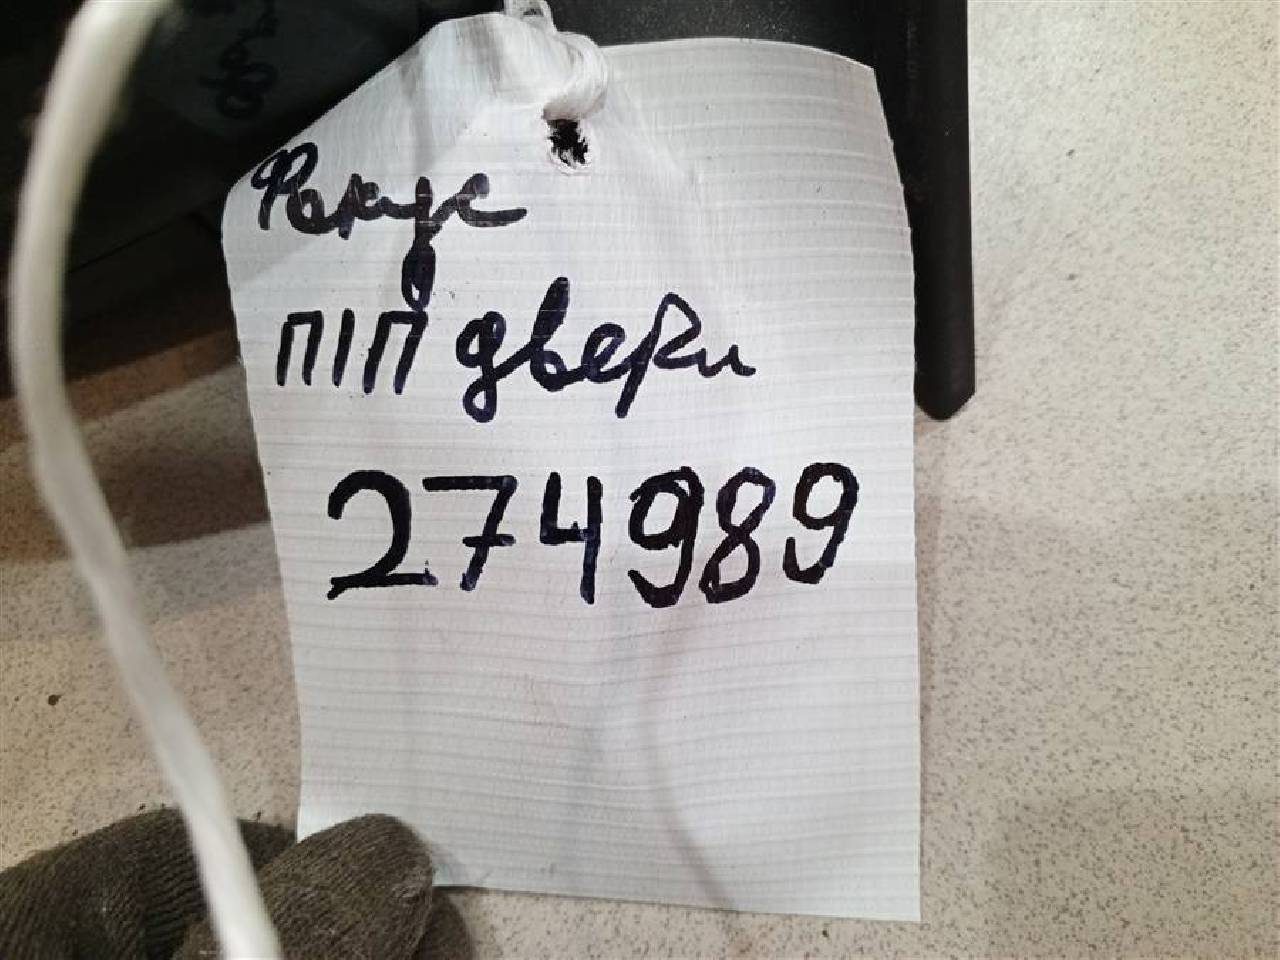 Фокус
П/П двери
274989